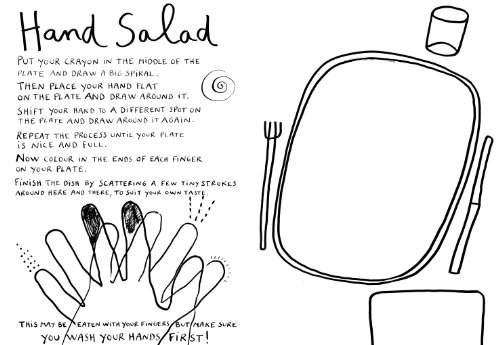 Hand Salad
PUT YOUR CRAYON IN THE MIDDLE OF THE
PLATE AND DRAW A BIG SPIRAL.
THEN PLACE YOUR HAND FLAT
ON THE PLATE AND DRAW AROUND IT.
SHIFT YOUR HAND TO A DIFFERENT SPOT ON
THE PLATE AND DRAW AROUND IT AGAIN.
REPEAT THE PROCESS UNTIL YOUR PLATE
IS NICE AND FULL.
NOW COLOUR IN THE ENDS OF EACH FINGER
ON YOUR PLATE.
FINISH THE DISH BY SCATTERING A FEW TINY STROKES
AROUND HERE AND THERE, TO SUIT YOUR OWN TASTE.
THIS MAY BE EATEN WITH YOUR FINGERS BUT MAKE SURE
YOU WASH YOUR HANDS FIRST!